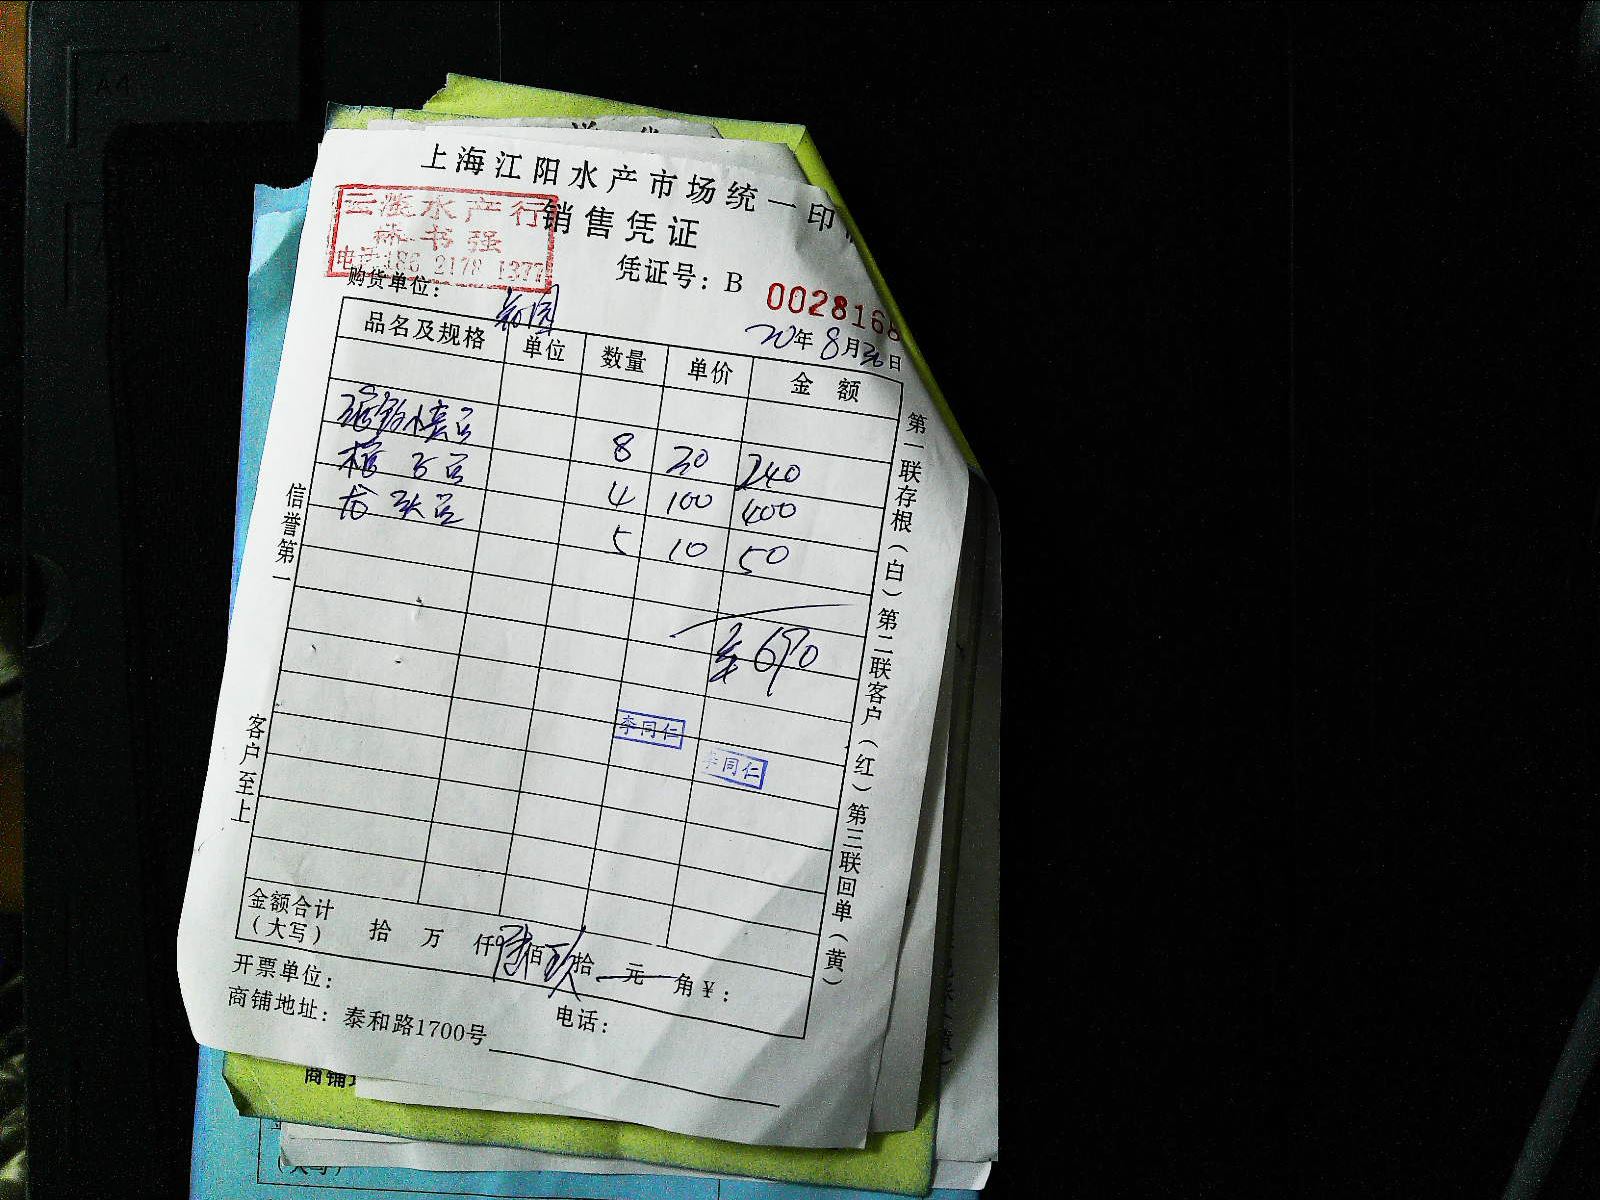 A4
上海江阳水产市场统一印
销售凭证
水产行
书强
电话:186 2178 1377
凭证号：B 0028168
购货单位：
20年8月30日
品名及规格 单位 数量 单价 金额
8 30 240
4 100 400
龙头 5 10 50
690
李同仁
李同仁
信誉第一
客户至上
第一联存根（白）第二联客户（红）第三联回单（黄）
金额合计
（大写） 拾 万 仟 陆佰 玖拾 元 角￥：
开票单位：
电话：
商铺地址：泰和路1700号
商铺
（大写）